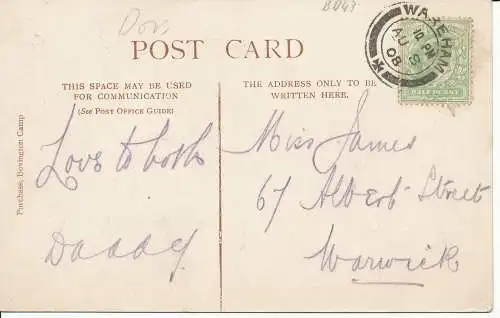 Dor.
B043
POST CARD
WAREHAM
10 PM
AU 8
08
HALFPENNY
THIS SPACE MAY BE USED
FOR COMMUNICATION
(See POST OFFICE GUIDE)
THE ADDRESS ONLY TO BE
WRITTEN HERE.
Purchase, Bovington Camp
Love to both
Daddy
Miss James
67 Albert Street
Warwick